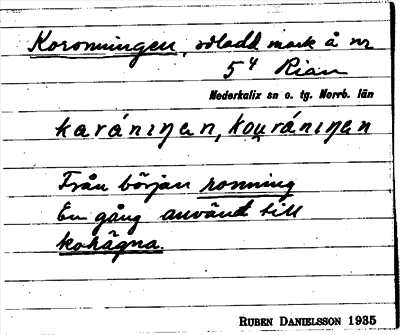 Koronningen, odladd mark å nr
5⁴ Rian
Nederkalix sn o. tg. Norrb. län
karánıŋen, kou̯ránıŋen
Från början ronning
En gång använt till
kohägna.
RUBEN DANIELSSON 1935